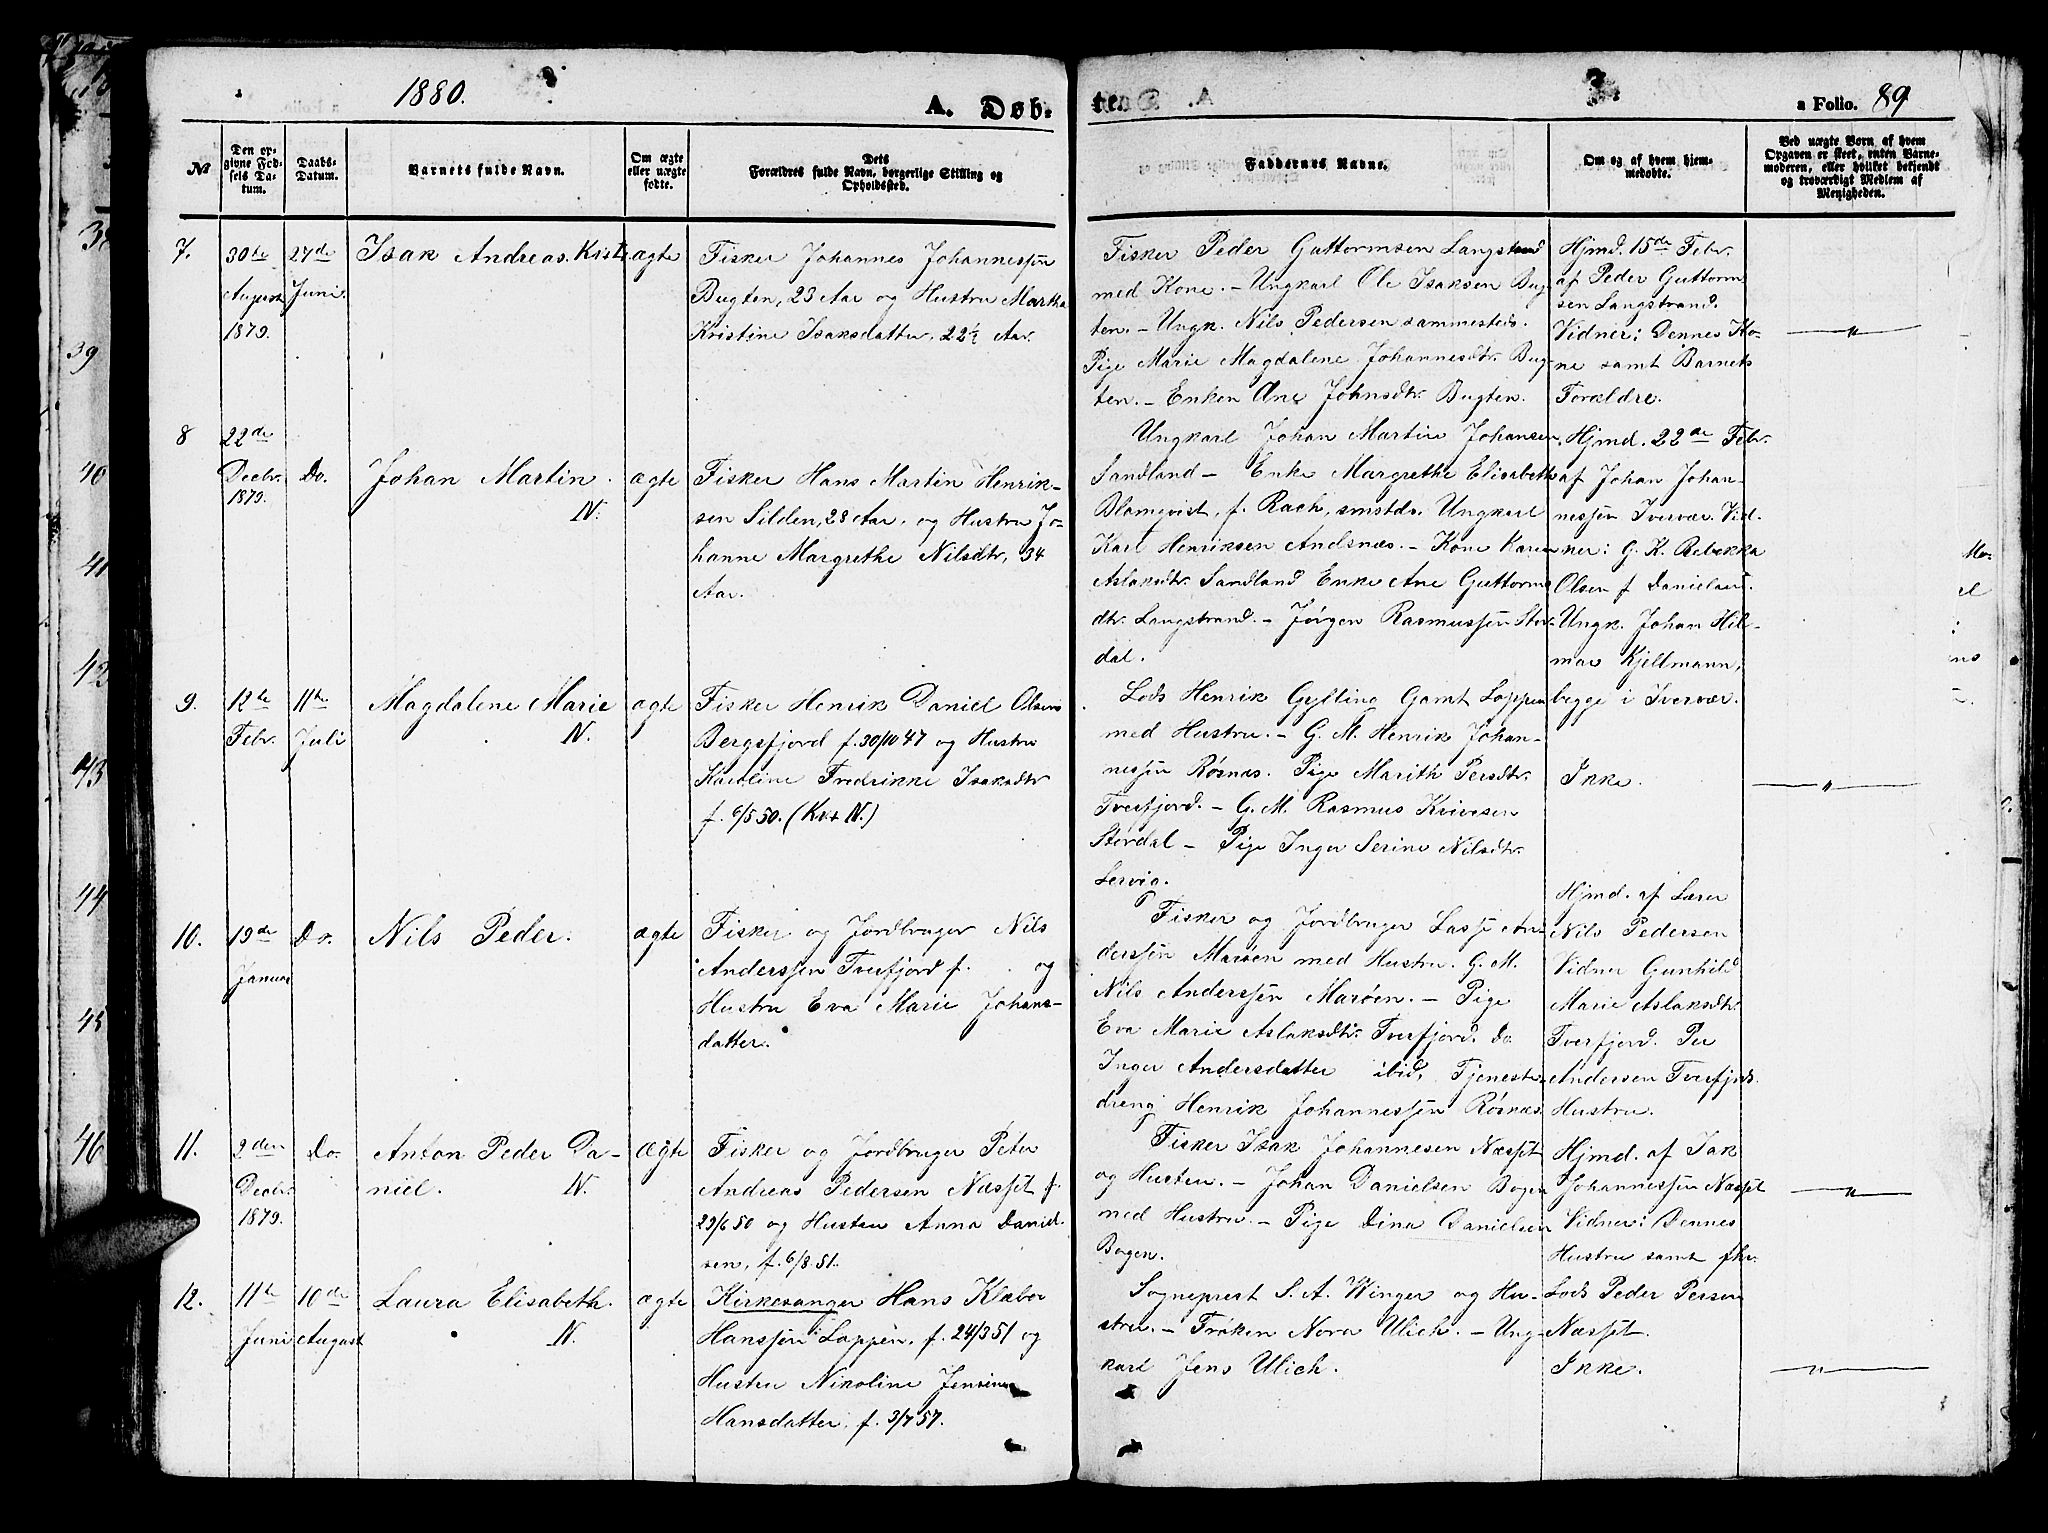 1880.
A. Døb-
ten
a Folio. 89
№
Den opgivne Fødsels Datum.
Daabs-Datum.
Barnets fulde Navn.
Om ægte eller uægte fødte.
Dets Forældres fulde Navn, borgerlige Stilling og Opholdssted.
Faddernes Navne.
Om og af hvem hjemmedøbt.
Ved uægte Børn af hvem Opgaven er skeet, enten Barnemoderen, eller hvilket bekjendt og troværdigt Medlem af Menigheden.
7.
30te
August
1879.
27de
Juni.
Isak Andreas. Krist.
ægte
Fisker Johannes Johannessen
Bugten, 23 Aar og Hustru Martha
Kristine Isaksdatter, 22½ Aar.
Fisker Peder Guttormsen Langstrand
med Kone. – Ungkarl Ole Isaksen Bug-
ten. – Ungk. Nils Pedersen sammesteds.
Pige Marie Magdalene Johannesdtr. Bug-
ten. – Enken Ane Johnsdtr. Bugten.
Hjmd. 15de Febr.
af Peder Guttorm
sen Langstrand.
Vidner: Dennes Ko-
ne samt Barnets
Forældre.
8
22de
Decbr.
1879.
Do.
Johan Martin.
N.
ægte
Fisker Hans Martin Henrik-
sen Silden, 28 Aar. og Hustru Jo-
hanne Margrethe Nilsdtr, 34
Aar.
Ungkarl Johan Martin Johansen
Sandland – Enke Margrethe Elisabeth
Blomqvist, f. Rach, smstds. Ungkarl
Karl Henriksen Andsnæs. – Kone Karen
Aslaksdtr. Sandland Enke Ane Guttorms
dtr. Langstrand. – Jørgen Rasmussen Stor-
dal.
Hjmd. 22de Febr.
af Johan Johan-
nessen Iversvær. Vid.
ner: G. K. Rebekka
Olsen f Danielsen.
Ungk. Johan Hil-
mar Kjeltmann,
begge i Iversvær.
9.
12te
Febr.
11te
Juli
Magdalene Marie
N.
ægte
Fisker Henrik Daniel Olsens
Bergsfjord f. 30/10 47 og Hustru
Karoline Fredrikke Isaksdtr
f. 6/5 50. (Kv+N.)
Lods Henrik Gylling Gamt Loppen
med Hustru. – G. M. Henrik Johan-
nessen Røsnæs. Pige Marith Persdtr.
Tverfjord. – G. M. Rasmus Kriversen
Stordal – Pige Inger Serine Nilsdtr.
Lervig.
Ikke.
10.
19de
Januar
Do.
Nils Peder.
ægte
Fisker og Jordbruger Nils
Anderssen Tverfjord f. . og
Hustru Eva Marie Johans-
datter.
Fisker og Jordbruger Lasse An-
derssen Marøen med Hustru. G. M.
Nils Anderssen Marøen. – Pige
Eva Marie Aslaksdtr. Tverfjord. Do
Inger Andersdatter ibid, Tjeneste-
dreng Henrik Johannessen Røsnæs
Hjmd. af Lærer
Nils Pedersen
Vidner Gunhild
Marie Aslaksdtr.
Tverfjord. Per
Andersen Tverfjords
Hustru.
11.
2den
Decbr.
1879.
Do.
Anton Peder Da-
niel.
N.
ægte
Fisker og Jordbruger Peter
Andreas Pedersen Næsset f.
29/6 50 og Hustru Anna Daniel.
sen, f. 6/8 51.
Fisker Isak Johannesen Næsset
og Hustru. – Johan Danielsen Bogen
med Hustru. – Pige Dina Danielsen
Bogen.
Hjmd. af Isak
Johannessen Næsset
Vidner: Dennes
Hustru samt fhv.
Lods Peder Persen
Næsset.
12.
11te
Juni
10de
August
Laura Elisabeth.
N.
ægte
Kirkesanger Hans Klæboe
Hanssen i Loppen. f. 24/3 51 og
Hustru Nikoline Jensine
Hansdatter. f. 3/7 57.
Sogneprest S. A. Winger og Hu-
stru. – Frøken Nora Ulich. – Ung-
karl Jens Ulich.
Ikke.
39
40
41
42
43
44
45
46